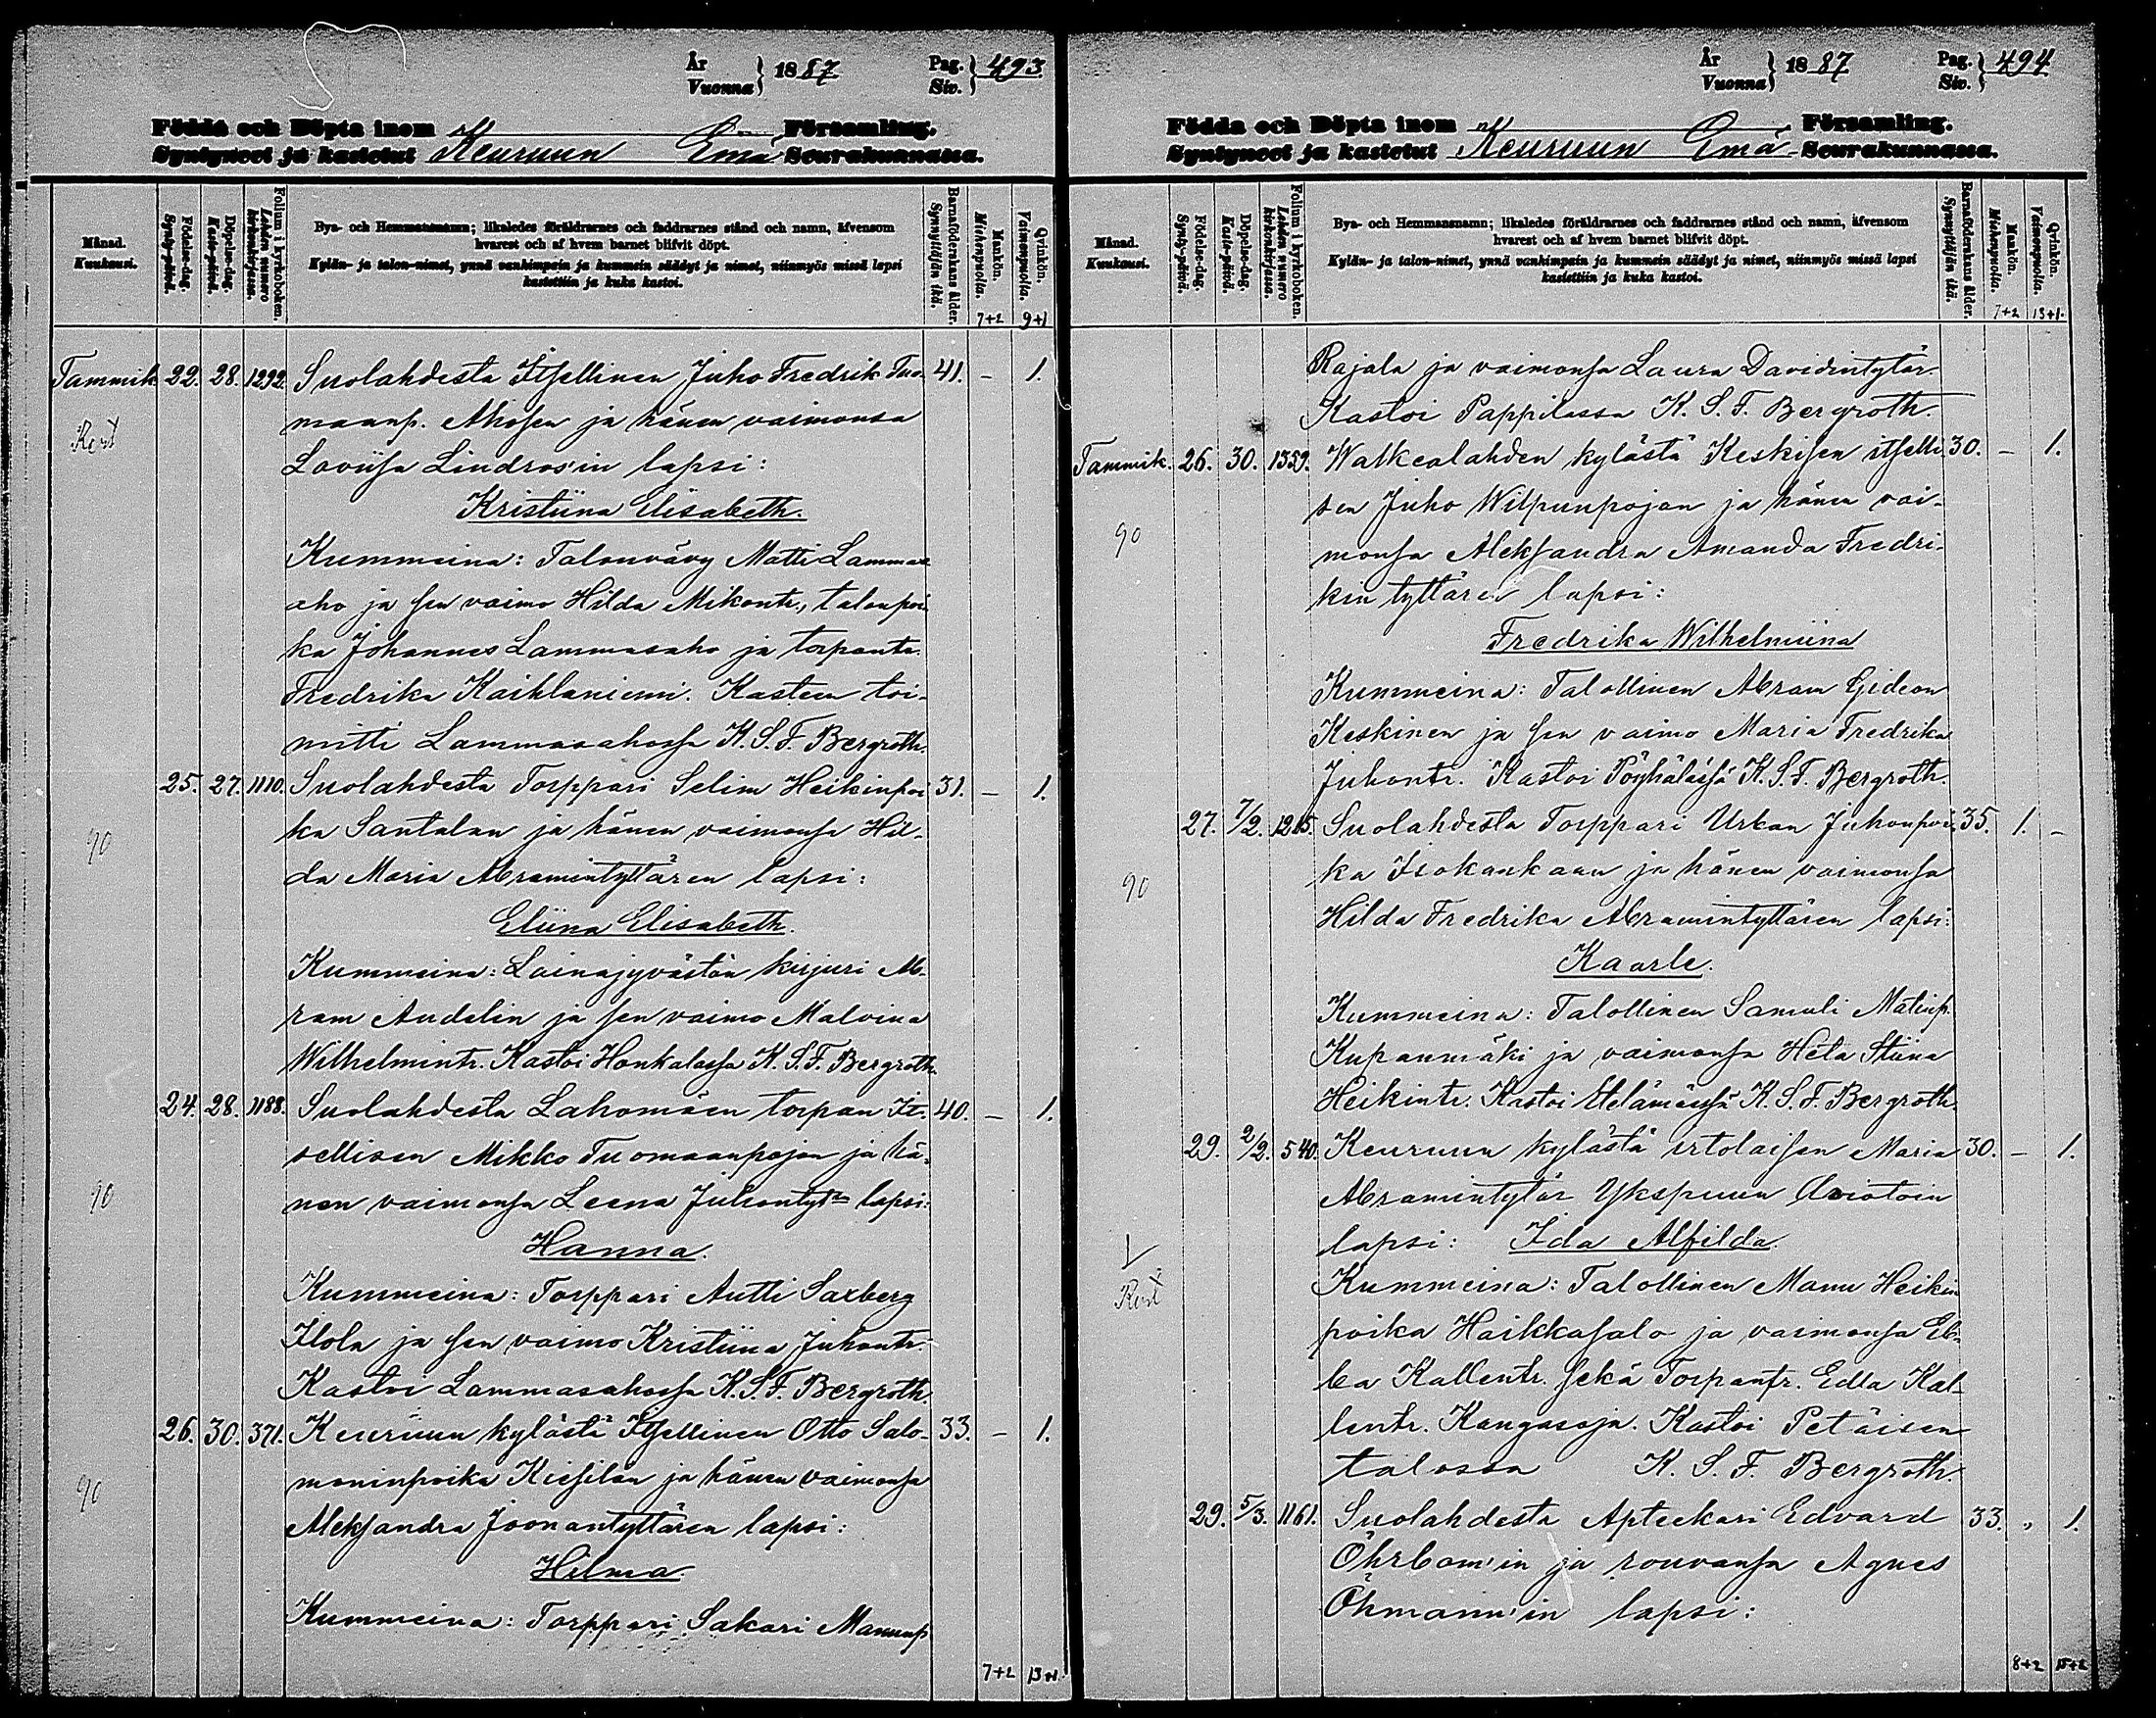 År
Vuonna } 1887 Pag.
Siv. } 493
Födda och Döpta inom Församling.
Syntyneet ja kastetut Keuruun Emä Seurakunnassa.
Månad.
Kuukausi.
Födelse-dag.
Synty-päivä.
Döpelse-dag.
Kaste-päivä.
Folium i kyrkoboken.
Lehden numero kirkonkirjassa.
Bya- och Hemmansnamn; likaledes föräldrarnes och faddrarnes stånd och namn, äfvensom
hvarest och af hvem barnet blifvit döpt.
Kylän- ja talon-nimet, ynnä vanhimpain ja kummein säädyt ja nimet, niinmyös missä lapsi
kastettiin ja kuka kastoi.
Barnaföderskans ålder.
Synnyttäjän ikä.
Mankön.
Miehenpuolia.
Qvinkön.
Vaimonpuolia.
7+2 9+1
Tammik. 22. 28. 1292. Suolahdesta Itsellinen Juho Fredrik Tuo- 41. - 1.
maanp. Ahosen ja hänen vaimonsa
Loviisa Lindros'in lapsi:
Kristiina Elisabeth.
Kummeina: Talonvävy Matti Lammas
aho ja sen vaimo Hilda Mikontr., talonpoi
ka Johannes Lammasaho ja torpantr.
Fredrika Kaihlaniemi. Kasteen toi-
mitti Lammasahossa K.S.F. Bergroth.
25. 27. 1110. Suolahdesta Torppari Selim Heikinpoi 31. - 1.
90
ka Santalan ja hänen vaimonsa Hil-
da Maria Abramintyttären lapsi:
Eliina Elisabeth.
Kummeina: Lainajyvästön kirjuri Ab-
ram Andelin ja sen vaimo Malvina
Wilhelmintr. Kastoi Honkalassa K.S.F. Bergroth.
24. 28. 1188. Suolahdesta Lahomäen torpan It- 40. - 1.
sellisen Mikko Tuomaanpojan ja hä-
90
nen vaimonsa Leena Juhontytr lapsi:
Hanna.
Kummeina: Torppari Antti Saxberg
Ilola ja sen vaimo Kristiina Juhontr.
Kastoi Lammasahossa K.S.F. Bergroth.
26. 30. 371. Keuruun kylästä Itsellinen Otto Salo- 33. - 1.
90
moninpoika Kiesilän ja hänen vaimonsa
Aleksandra Joonantyttären lapsi:
Hilma
Kummeina: Torppari Sakari Manunp
7+2 13+1
År
Vuonna } 1887 Pag.
Siv. } 494
Födda och Döpta inom Församling.
Syntyneet ja kastetut Keuruun Emä- Seurakunnassa.
Månad.
Kuukausi.
Födelse-dag.
Synty-päivä.
Döpelse-dag.
Kaste-päivä.
Folium i kyrkoboken.
Lehden numero kirkonkirjassa.
Bya- och Hemmansnamn; likaledes föräldrarnes och faddrarnes stånd och namn, äfvensom
hvarest och af hvem barnet blifvit döpt.
Kylän- ja talon-nimet, ynnä vanhimpain ja kummein säädyt ja nimet, niinmyös missä lapsi
kastettiin ja kuka kastoi.
Barnaföderskans ålder.
Synnyttäjän ikä.
Mankön.
Miehenpuolia.
Qvinkön.
Vaimonpuolia.
7+2 13+1.
Rajala ja vaimonsa Laura Davidintytär.
Kastoi Pappilassa K.S.F. Bergroth.
Tammik. 26. 30. 1359. Walkealahden kylästä Keskisen itselli 30. - 1.
sen Juho Wilpunpojan ja hänen vai-
90
monsa Aleksandra Amanda Fredri-
kin tyttären lapsi:
Fredrika Wilhelmiina
Kummeina: Talollinen Abram Gideon
Keskinen ja sen vaimo Maria Fredrika
Juhontr. Kastoi Pöyhölässä K.S.F. Bergroth.
27. 7/2. 1215. Suolahdesta Torppari Urban Juhonpoi 35. 1. -
ka Isokankaan ja hänen vaimonsa
90
Hilda Fredrika Abramintyttären lapsi:
Kaarle.
Kummeina: Talollinen Samuli Matinp.
Kupanmäki ja vaimonsa Heta Stiina
Heikintr. Kastoi Etelämäessä K.S.F. Bergroth.
29. 2/2. 540. Keuruun kylästä irtolaisen Maria 30. - 1.
Abramintytär Ykspuun Aviotoin
lapsi: Ida Alfilda.
Kummeina: Talollinen Manu Heikin
poika Haikkasalo ja vaimonsa Eb-
ba Kallentr. sekä Torpantr. Edla Kal-
lentr. Kangasoja. Kastoi Petäisen
talossa K.S.F. Bergroth.
29. 5/3. 1161. Suolahdesta Apteekari Edvard 33. „ 1.
Öhrbom'in ja rouvansa Agnes
Öhmann'in lapsi:
8+2 15+2